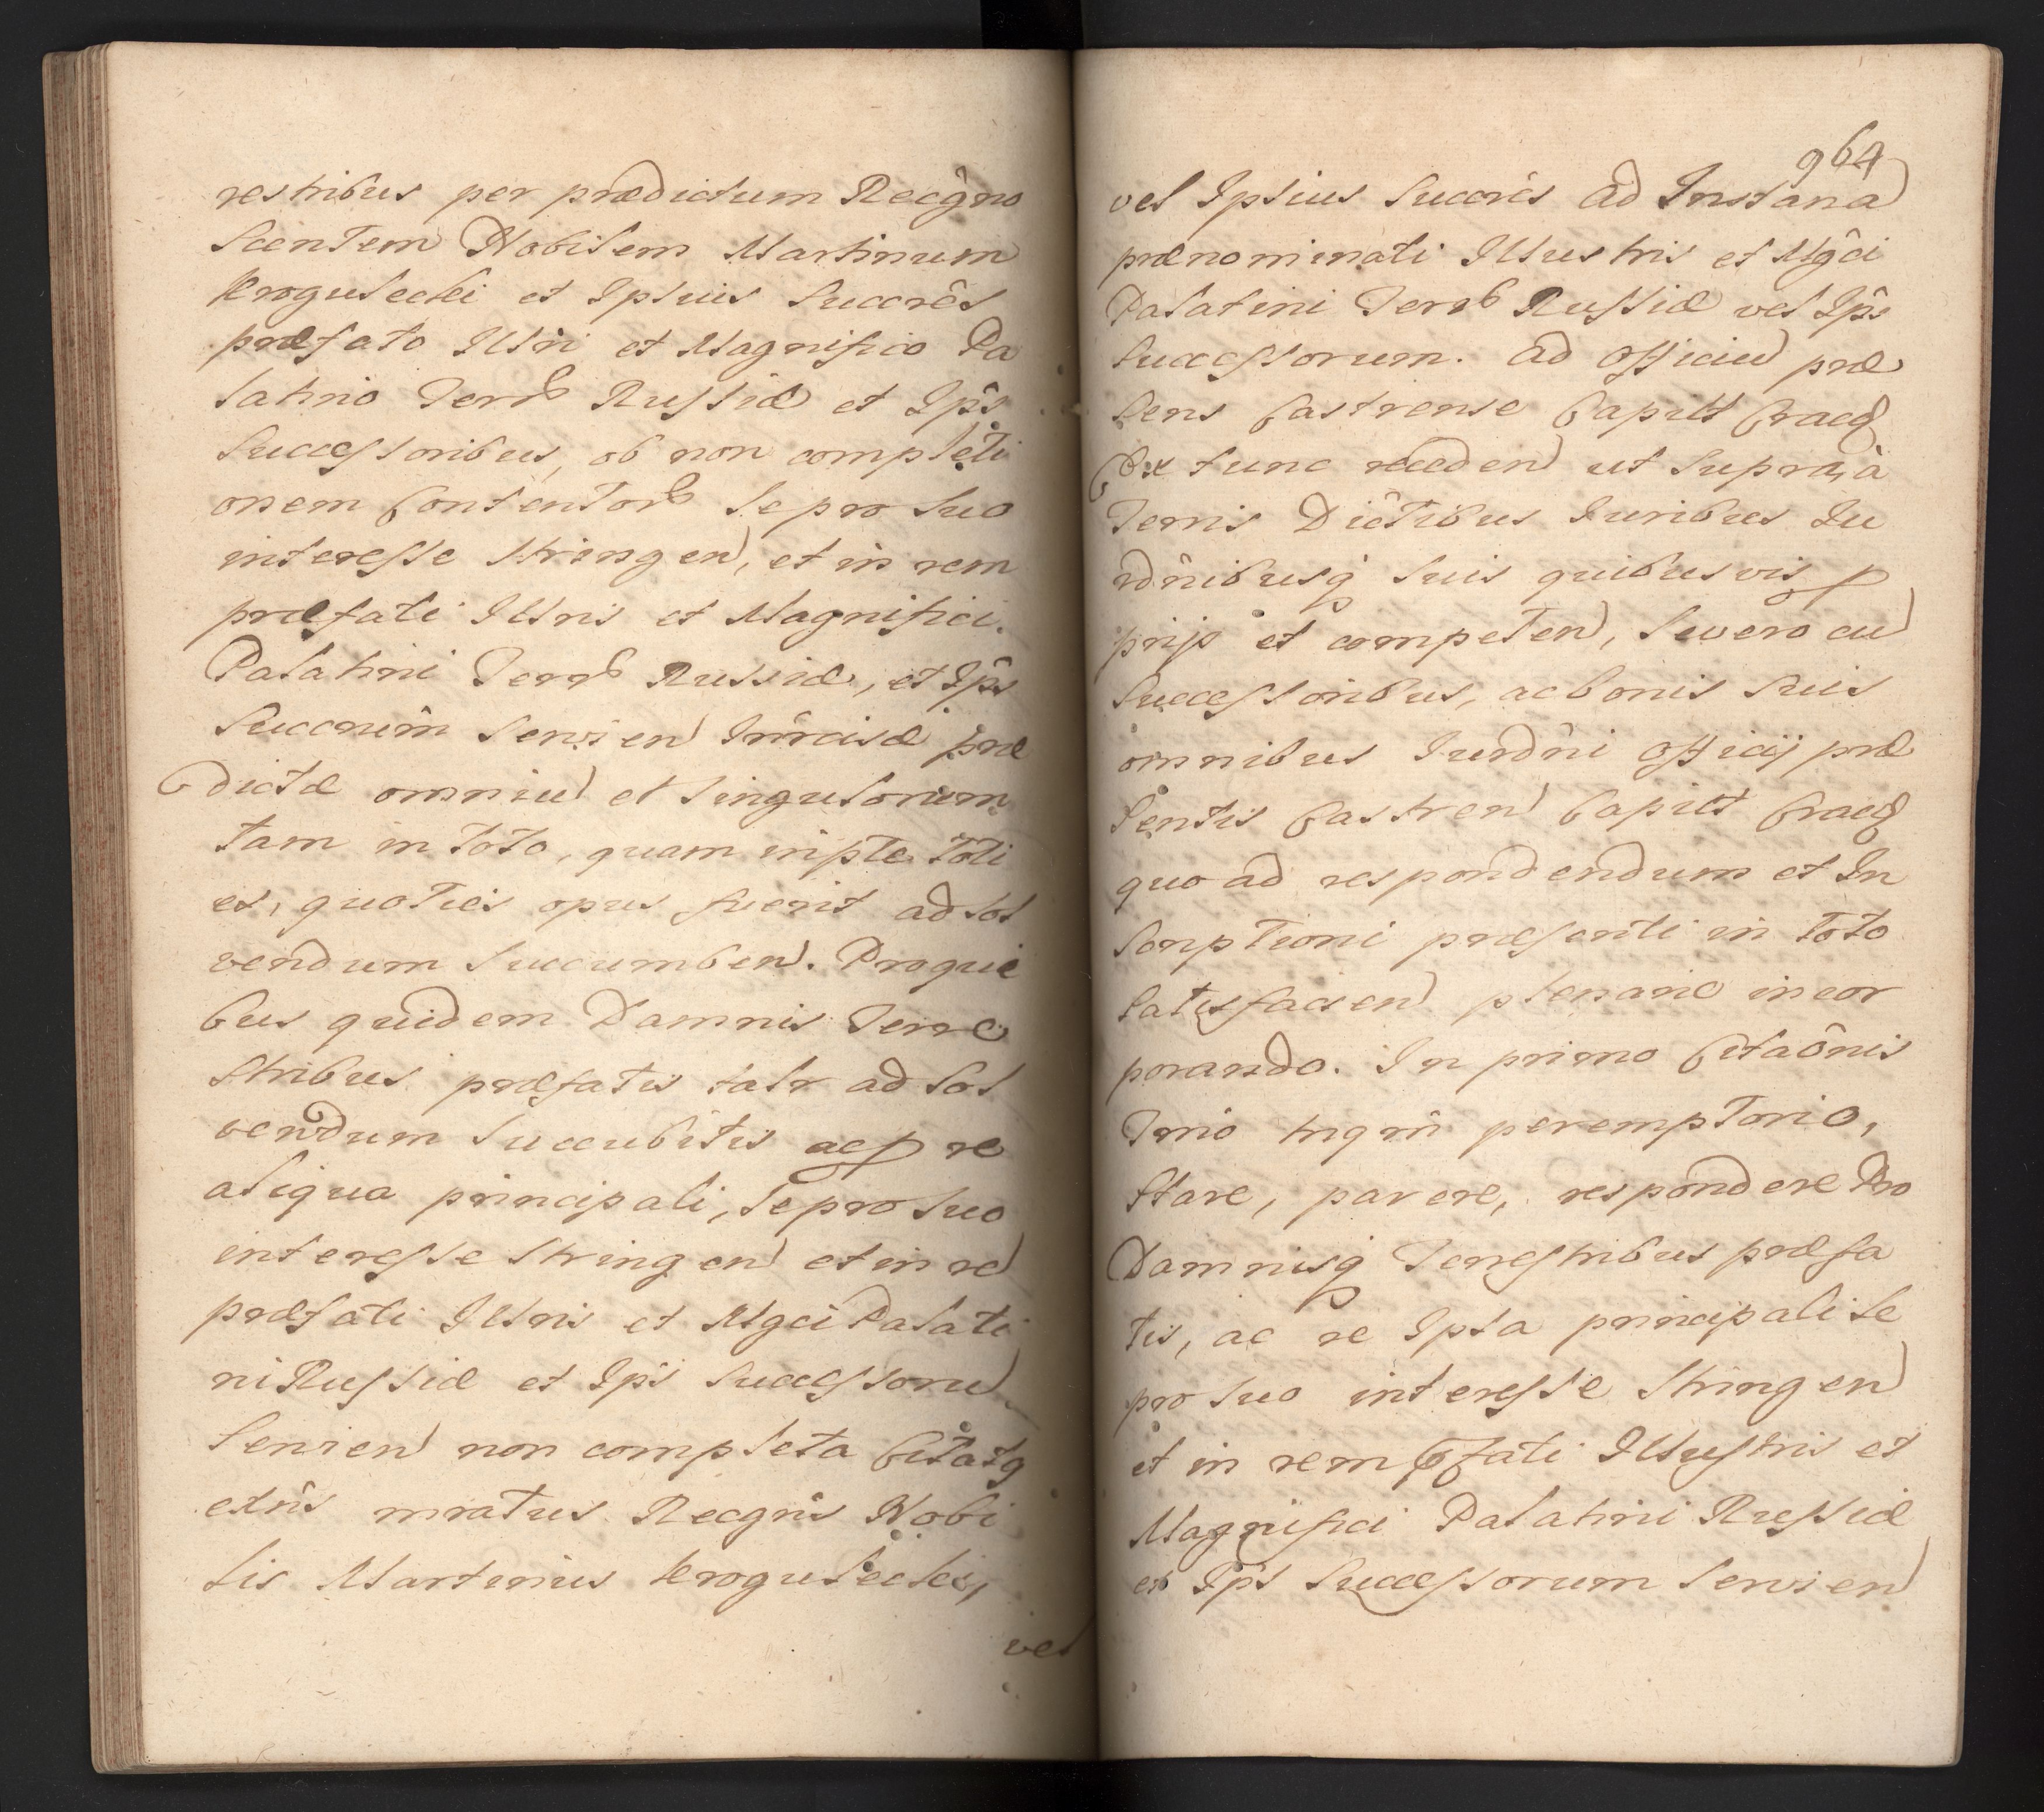 restribus per prædictum Recĝno
scentem Nobilem Martinum
Krogulecki et Ipsius Succrês
præfato Illŕi et Magnifico Pa
latino Terrb Russiæ et Ipŝ
Successoribus, ob non completi
onem Contentorb se pro suo
interesse stringen, et in rem
præfati Illŕis et Magnifici
Palatini Terrb Russiæ, et Ipŝ
Succrum̂ servien Inr̂cisæ præ
dictæ omniu et singulorum
tam in toto, quam in pte toti
es, quoties opus fuerit ad sol
vendum succumben. Pro qui
bus quidem Damnis Terre
stribus præfatis talr ad sol
vendum succubitis ac p re
aliqua principali, se pro suo
interesse stringen et in re
præfati Illris et Mgci Palati
ni Russiæ et Ips Successoru
servien non completa Citatq
extûs mratus Recgns Nobi
lis Martinus Krogulecki,
vel
964
vel Ipsius Succrîs ad Instana
prænominati Illustris et Mĝci
Palatini Terrb Russiæ vel Ipŝ
Successorum. ad Officiu præ
sens Castrense Capitt Cracq
Ex tunc receden ut supra, à
Terris Diĉtibus Iuribus Iu
rdn̂ibusq suis quibusvis p
prijs et competen, se vero cu
Successoribus, ac bonis suis
omnibus Iurdn̂i Officij præ
sentis Castren Capitt Cracq
quo ad respondendum et In
scriptioni præsenti in toto
satisfacien plenarie incor
porando. In primo Citaônis
Tmo tnqm̂ peremptorio,
stare, parere, respondere Pro
Damnisq Terrestribus præfa
tis, ac re Ipsa principali se
pro suo interesse stringen
et in rem pfati Illustris et
Magnifici Palatini Russiæ
et Ips Successorum servien